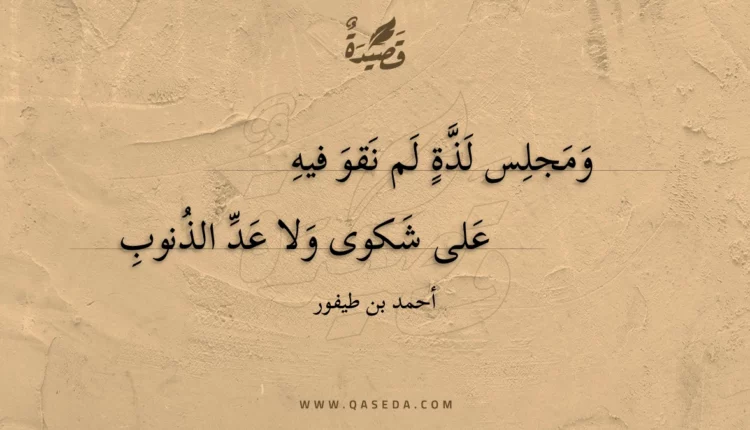 قَصِيدَةٌ
وَمَجلِس لَذَّةٍ لَم نَقوَ فيهِ
عَلى شَكوى وَلا عَدِّ الذُنوبِ
أحمد بن طيفور
WWW.QASEDA.COM